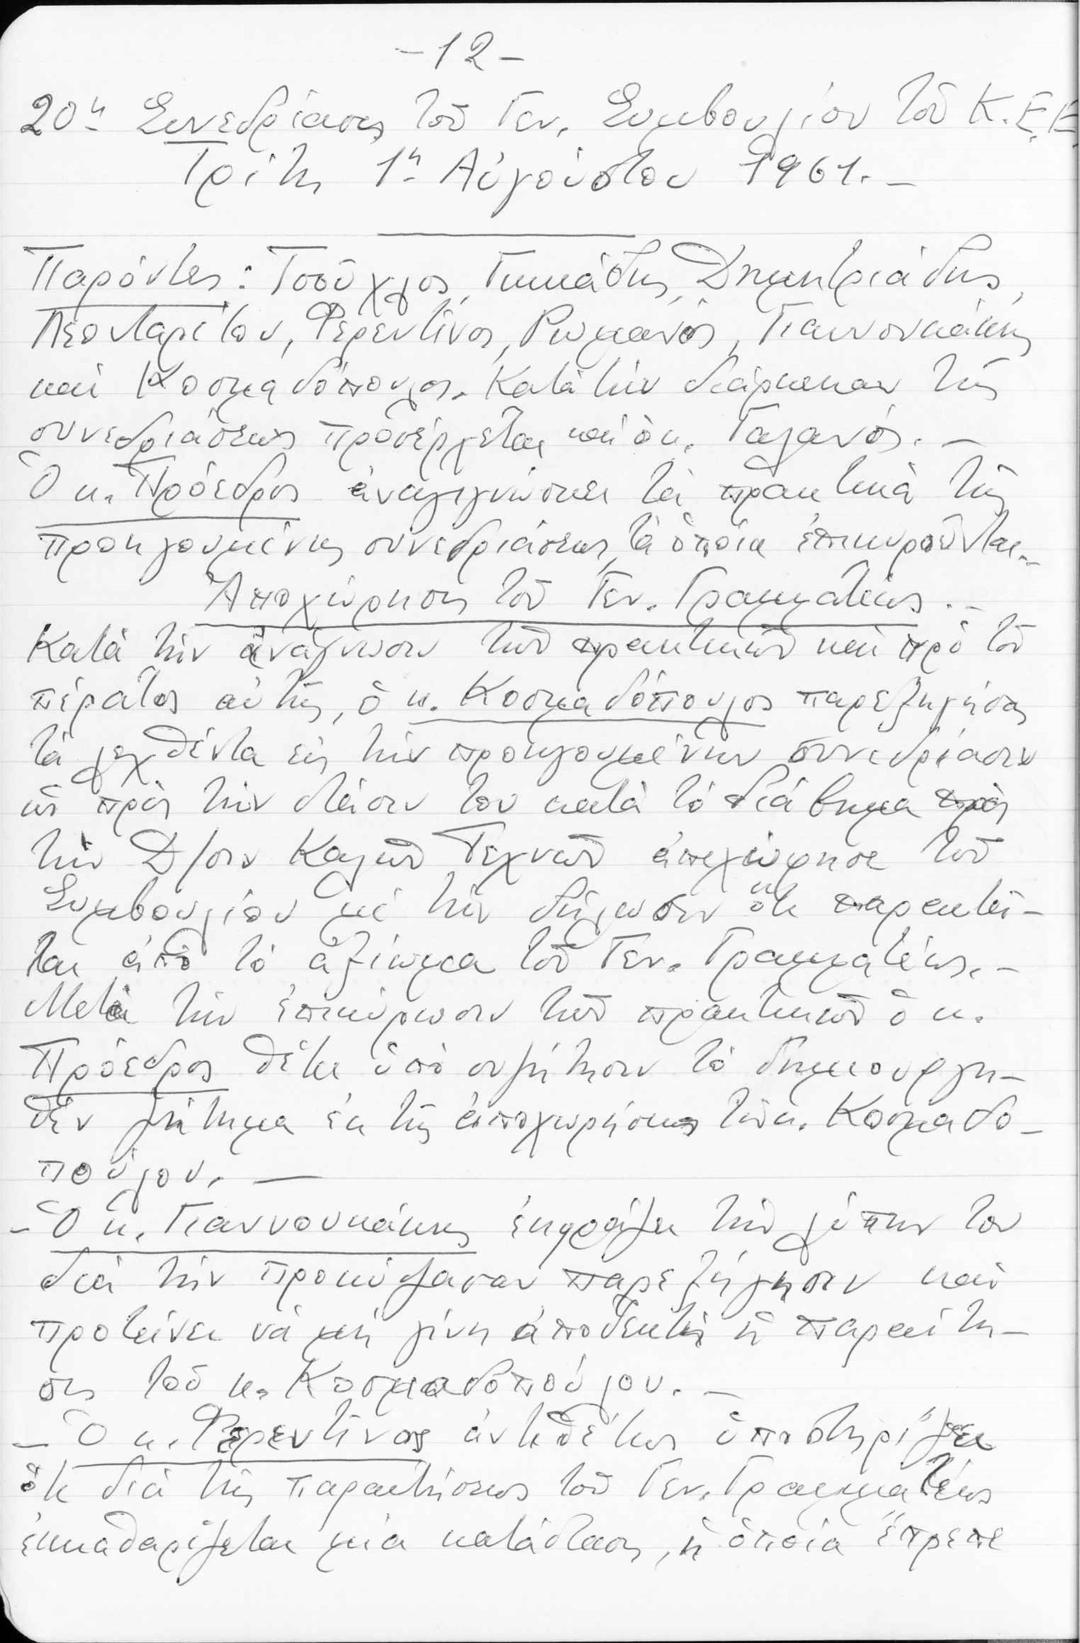 -12-
20ή Συνεδρίασις τοῦ Γεν. Συμβουλίου τοῦ Κ.Ε.Ε.
Τρίτη 1η Αὐγούστου 1961.-
Παρόντες: Τσοῦχλος, Γικκάδης, Δημητριάδης,
Λεονταρίτου, Φερεντῖνος, Ρωμανός, Γιαννουκάκης
καί Κοσμαδόπουλος. Κατά τήν διάρκειαν τῆς
συνεδριάσεως προσέρχεται καί ὁ κ. Γαλανός.-
Ὁ κ. Πρόεδρος ἀναγιγνώσκει τά πρακτικά τῆς
προηγουμένης συνεδριάσεως, τά ὁποῖα ἐπικυροῦνται.-
Ἀποχώρησις τοῦ Γεν. Γραμματέως.-
Κατά τήν ἀνάγνωσιν τῶν πρακτικῶν καί πρό τοῦ
πέρατος αὐτῆς, ὁ κ. Κοσμαδόπουλος παρεξηγήσας
τά λεχθέντα εἰς τήν προηγουμένην συνεδρίασιν
ὡς πρός τήν στάσιν του κατά τό διάβημα πρός
τήν Δ/σιν Καλῶν Τεχνῶν ἀπεχώρησε τοῦ
Συμβουλίου μέ τήν δήλωσιν ὅτι παραιτεῖ-
ται ἀπό τό ἀξίωμα τοῦ Γεν. Γραμματέως.-
Μετά τήν ἐπικύρωσιν τῶν πρακτικῶν ὁ κ.
Πρόεδρος θέτει ὑπό συζήτησιν τό δημιουργη-
θέν ζήτημα ἐκ τῆς ἀποχωρήσεως τοῦ κ. Κοσμαδο-
πούλου.-
-Ὁ κ. Γιαννουκάκης ἐκφράζει τήν λύπην του
διά τήν προκύψασαν παρεξήγησιν καί
προτείνει νά μή γίνῃ ἀποδεκτή ἡ παραίτη-
σις τοῦ κ. Κοσμαδοπούλου.-
-Ὁ κ. Φερεντῖνος ἀντιθέτως ὑποστηρίζει
ὅτι διά τῆς παραιτήσεως τοῦ Γεν. Γραμματέως
ἐκκαθαρίζεται μία κατάστασις, ἡ ὁποία ἔπρεπε